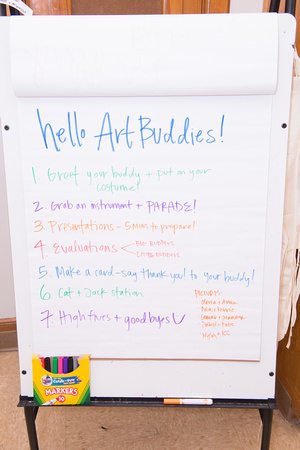 hello Art Buddies!
1. Greet your buddy + put on your
costume!
2. Grab an instrument + PARADE!
3. Presentations - 5 mins to prepare!
4. Evaluations
5. Make a card - say thank you! to your buddy!
6. Cat + Jack station
7 High fives + goodbyes!
MARKERS
10